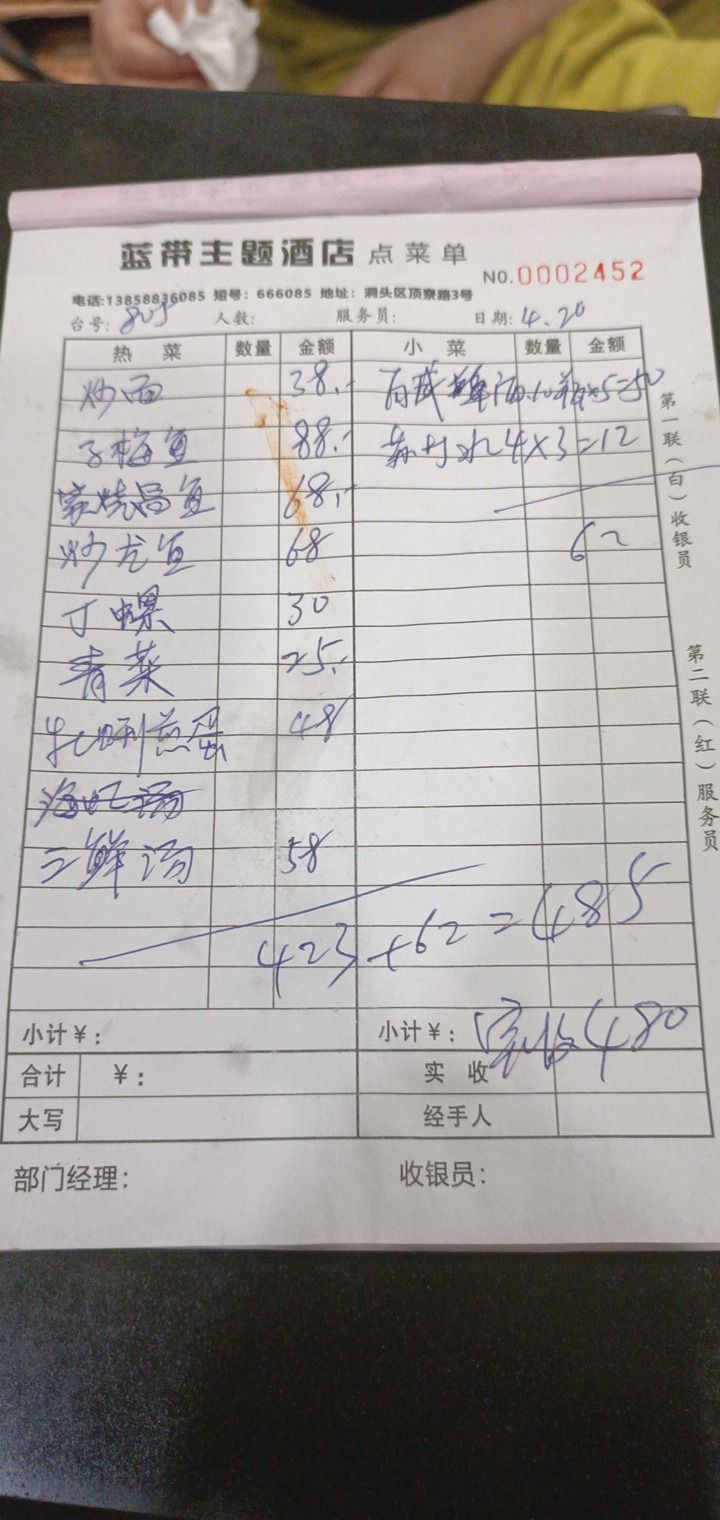 蓝带主题酒店 点菜单
NO.0002452
电话:13858836085 短号: 666085 地址: 洞头区顶寮路3号
台号: 805 人数: 服务员: 日期: 4.20
热 菜 数量 金额 小 菜 数量 金额
炒面 38.-
百威啤酒10瓶×5=50
子梅鱼 88.-
4×3=12
家烧昌鱼 68.-
炒龙鱼 68
62
丁螺 30
青菜 25.-
牡蛎煎蛋 48
三鲜汤 58
423+62=485
小计¥:
小计¥: 实收480
合计 ¥:
实 收
大写
经手人
部门经理:
收银员:
第一联(白)收银员
第二联(红)服务员